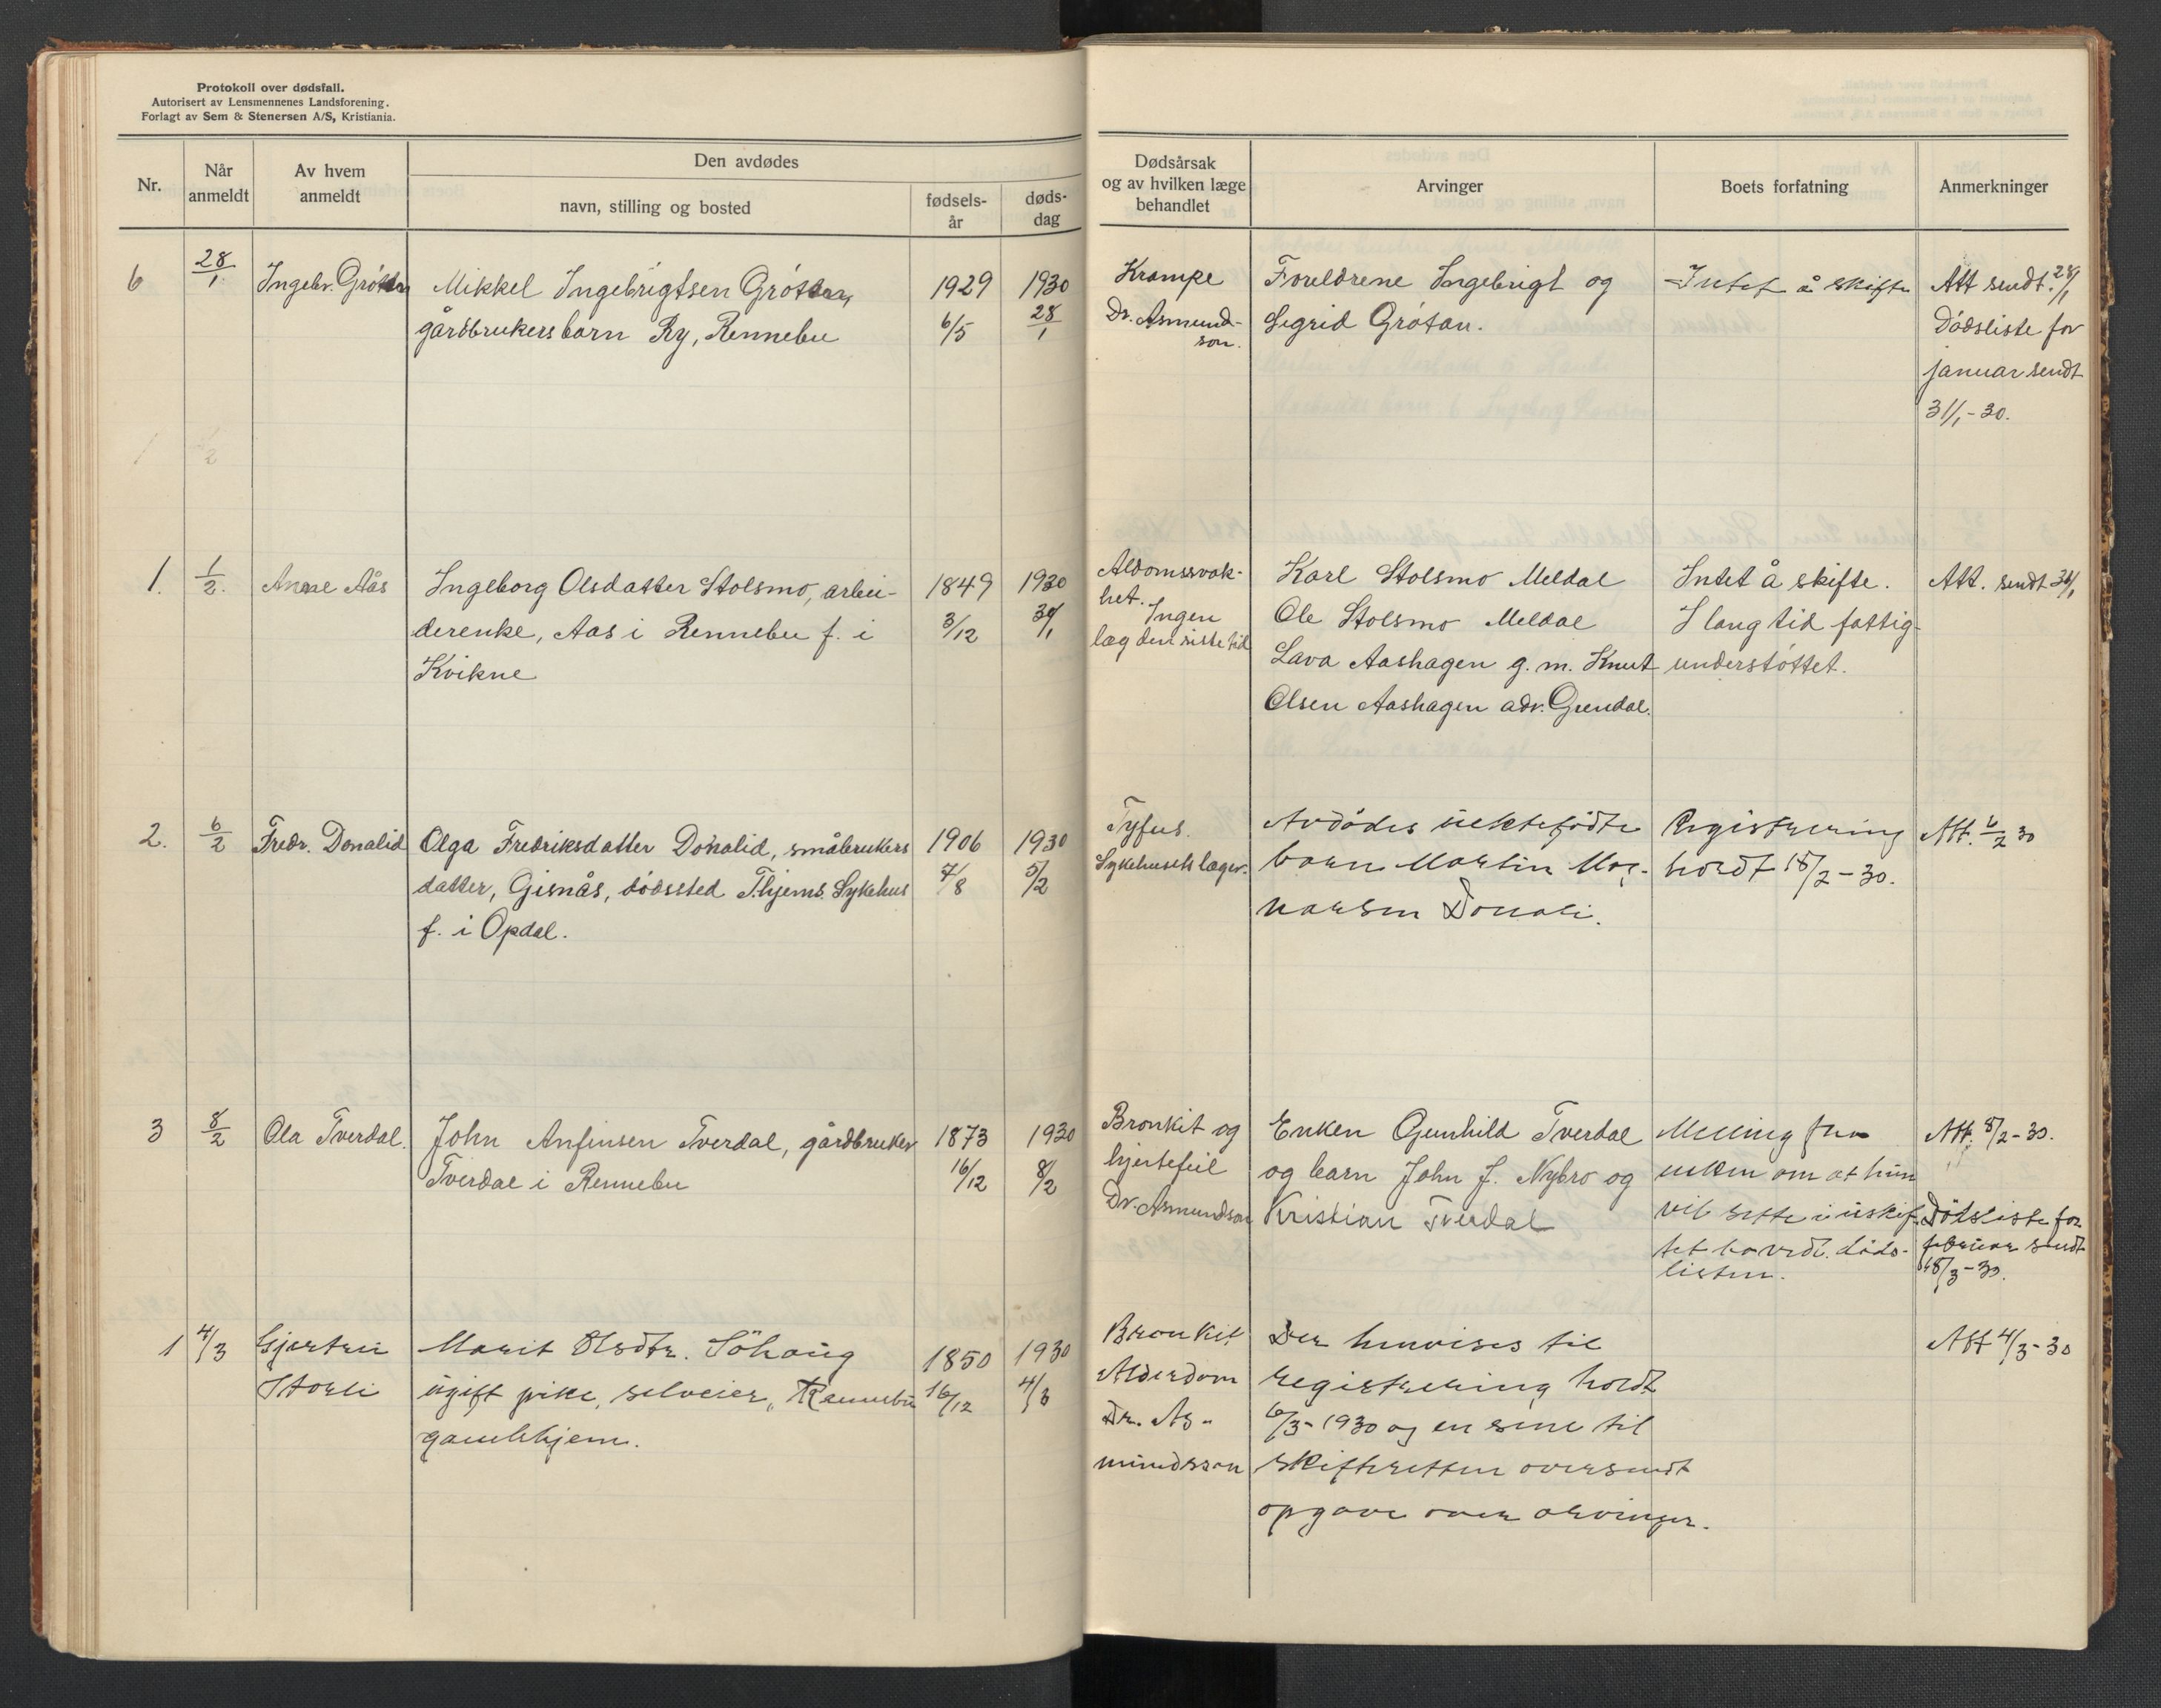 Protokoll over dødsfall.
Autorisert av Lensmennenes Landsforening.
Forlagt av Sem & Stenersen A/S, Kristiania.
Nr.
Når anmeldt
Av hvem anmeldt
Den avdødes
navn, stilling og bosted
fødselsår
dødsdag
Dødsårsak og av hvilken læge behandlet
Arvinger
Boets forfatning
Anmerkninger
6
28/1
Ingebr. Grötan
Mikkel Ingebrigtsen Grötan,
gårdbrukersbarn Ry, Rennebu
1929
6/5
1930
28/1
Krampe
Dr. Asmund-
son.
Foreldrene Ingebrigt og
Sigrid Grötan.
Intet å skifte
Att sendt 28/1
Dödsliste for
januar sendt
31/1-30.
1.
1/2.
Anne Aås
Ingeborg Olsdatter Stolsmo, arbei-
derenke, Aas i Rennebu f. i
Kvikne
1849
3/12
1930
Aldomssvak-
het.
Ingen
læg den siste tid
Karl Stolsmo Meldal
Ole Stolsmo Meldal
Lava Aashagen g. m. Knut
Olsen Aashagen adr. Grendal.
Intet å skifte.
I lang tid fattig-
understöttet.
Att. sendt
2.
6/2
Fredr. Donalid
Olga Fredriksdatter Donalid, småbrukers
datter, Gisnås, dödssted T.hjems Sykehus
f. i Opdal.
1906
7/8
1930
5/2
Tyfus.
Sykehusets læger.
Avdödes uektefödte
barn Martin Mag-
narsen Donali.
Registrering
holdt 18/2-30.
Att. 6/2 30
3
8/2
Ola Tverdal.
John Anfinsen Tverdal, gårdbruker
Tverdal i Rennebu
1873
16/12
1930
8/2
Bronkit og
hjertefeil
Dr. Asmundson
Enken Gunhild Tverdal
og barn John J. Nybro og
Kristian Tverdal
Melling fra
enken om at hun
vil sitte i uskif-
tet bo vedl. döds-
listen.
Att. 8/2-30.
Dödsliste for
februar sendt
18/3-30.
1
4/3
Gjertru
Storli
Marit Olsdtr. Söhaug
ugift pike, selveier, Rennebu
gamlehjem.
1850
16/12
1930
4/3
Bronkit
Alderdom
Dr. As-
mundsson
Der henvises til
registrering holdt
6/3-1930 og en sene til
skifteretten oversendt
opgave over arvinger.
Att 4/3-30